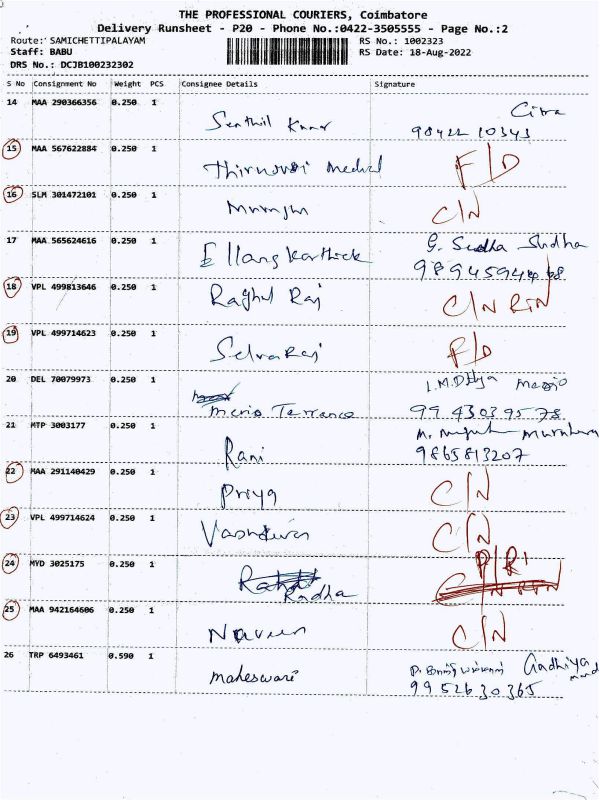 THE PROFESSIONAL COURIERS, Coimbatore
Delivery Runsheet - P20 - Phone No.:0422-3505555 - Page No.:2
Route: SAMICHETTIPALAYAM RS No.: 1002323
Staff: BABU RS Date: 18-Aug-2022
DRS No.: DCJB100232302
S No Consignment No Weight PCS Consignee Details Signature
14 MAA 290366356 0.250 1 Senthil Kumar
15 MAA 567622884 0.250 1 F/D
16 SLM 301472101 0.250 1 C/N
17 MAA 565624616 0.250 1 G. Sudha Sudha
18 VPL 499813646 0.250 1 Raghul Raj C/N
19 VPL 499714623 0.250 1 Selvaraj F/D
20 DEL 70079973 0.250 1 Merio Terrance 9943039578
21 MTP 3003177 0.250 1 Rani 9865813207
22 MAA 291140429 0.250 1 Priya C/N
23 VPL 499714624 0.250 1 C/N
24 MYD 3025175 0.250 1 Radha
25 MAA 942164606 0.250 1 Naveen C/N
26 TRP 6493461 0.590 1 maheswari 9952630365